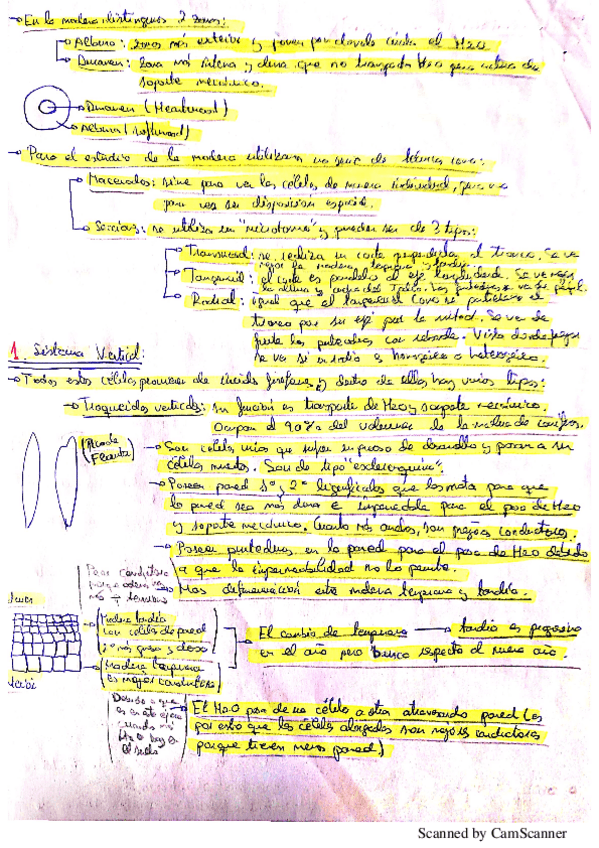 → En la madera distinguimos 2 zonas:
Albura: zona más exterior y joven por donde circula el H2O
Duramen: zona más interna y dura que no transporta H2O pero actúa de
soporte mecánico.
→ Duramen (Heartwood)
→ Albura (softwood)
→ Para el estudio de la madera utilizamos una serie de técnicas como:
Macerados: sirve para ver las células de manera individual, pero no
para ver su disposición espacial.
Secciones: se utiliza un "microtomo" y pueden ser de 3 tipos:
Transversal: se realiza un corte perpendicular al tronco. Se ve
mejor la madera temprana y tardía.
Tangencial: el corte es paralelo al eje longitudinal. Se ve mejor
la altura y anchura del radio. Las punteaduras se ven de perfil.
Radial: igual que el tangencial como si partiera el
tronco por su eje por la mitad. Se ve de
frente las punteaduras con reborde. Vista donde mejor
se ve si un radio es homogéneo o heterogéneo.
1. Sistema Vertical:
→ Todas estas células provienen de iniciales fusiformes, y dentro de ellas hay varios tipos:
→ Traqueidas verticales: su función es transporte de H2O y soporte mecánico.
Ocupan el 90% del volumen de la madera de coníferas.
(Pico de
Flauta)
→ Son células vivas que sufren un proceso de desarrollo y pasan a ser
células muertas. Son de tipo "esclerenquima".
→ Poseen pared 1ª y 2ª lignificadas que las mata para que
la pared sea más dura e impermeable para el paso de H2O
y soporte mecánico. Cuanto más anchas, son mejores conductoras.
→ Poseen punteaduras en la pared para el paso de H2O debido
a que la impermeabilidad no lo permite.
Peor conductora
Hay diferenciación entre madera temprana y tardía.
Madera tardía
con células de pared
más gruesa y densa
Madera temprana
es mejor conductora
→ El cambio de temprana → tardía es progresivo
en el año pero brusco respecto al nuevo año.
Debido a que
es en esta época
cuando más
H2O hay en
el suelo
→ El H2O pasa de una célula a otra atravesando pared (es
por esto que las células alargadas son mejores conductoras
porque tienen menos pared)
Scanned by CamScanner